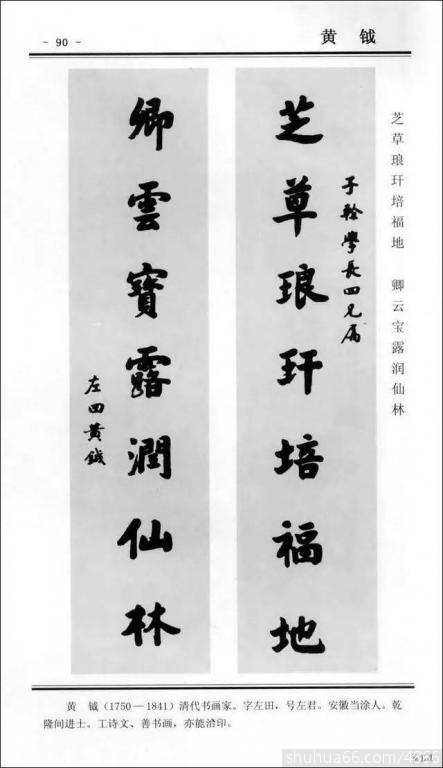 - 90 -
黄 钺
芝草琅玕培福地 卿云宝露润仙林
芝草琅玕培福地
子榦學長四兄屬
卿雲寶露潤仙林
左田黄鉞
黄 钺(1750—1841)清代书画家。字左田,号左君。安徽当涂人。乾
隆间进士。工诗文、善书画,亦能治印。